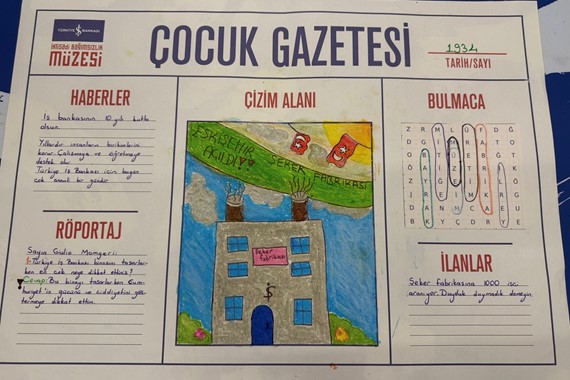 TÜRKİYE İŞ BANKASI
İKTİSADİ BAĞIMSIZLIK
MÜZESİ
ÇOCUK GAZETESİ
1934
TARİH/SAYI
HABERLER
İş bankasının 10.yılı kutlu
olsun.
Yıllardır insanların birikimlerini
korur. Çalışmaya ve öğretmeye
destek olur.
Türkiye İş Bankası için bugün
çok önemli bir gündür.
RÖPORTAJ
Sayın Giulio Mongeri:
Türkiye İş Bankası binasını tasarlar-
ken en çok neye dikkat ettiniz?
Cevap: Bu binayı tasarlarken Cum-
huriyet'in gücünü ve ciddiyetini gös-
termeye dikkat ettim.
ÇİZİM ALANI
ESKİŞEHİR ŞEKER FABRİKASI
AÇILDI
Şeker
fabrikası
BULMACA
İLANLAR
Şeker fabrikasına 1000 işçi
aranıyor. Duyduk duymadık demeyin.